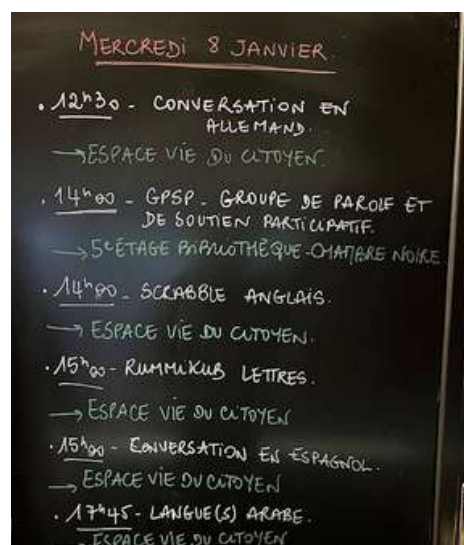 MERCREDI 8 JANVIER
. 12h30 - CONVERSATION EN
ALLEMAND.
→ ESPACE VIE DU CITOYEN.
. 14h00 - GPSP - GROUPE DE PAROLE ET
DE SOUTIEN PARTICIPATIF.
→ 5e ÉTAGE BIBLIOTHÈQUE - CHAMBRE NOIRE
. 14h00 - SCRABBLE ANGLAIS.
→ ESPACE VIE DU CITOYEN.
. 15h00 - RUMMIKUB LETTRES.
→ ESPACE VIE DU CITOYEN
. 15h00 - CONVERSATION EN ESPAGNOL.
→ ESPACE VIE DU CITOYEN
. 17h45 - LANGUE(S) ARABE.
→ ESPACE VIE DU CITOYEN